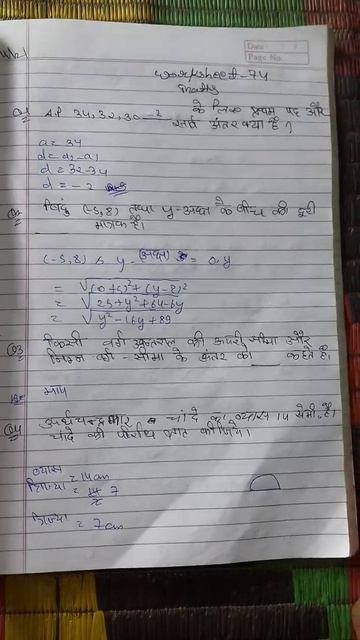 Date
Page No.
Worksheet-74
Maths
Q1 A.P 34, 32, 30 — -2 के लिए प्रथम पद और
सार्व अंतर क्या है ?
a = 34
d = a2 - a1
d = 32-34
d = -2 Ans
Q2 बिंदु (-5,8) तथा y-अक्ष के बीच की दूरी
मात्रक है।
(-5,8) & y - (अक्ष) = 0,y
= √(0+5)²+(y-8)²
= √25+y²+64-16y
= √y²-16y+89
Q3 किसी वर्ग अन्तराल की ऊपरी सीमा और
निम्न वर्ग-सीमा के अंतर को ___ कहते है।
माप
Q4 अर्धचन्द्राकार चांदे का व्यास 14 सेमी. है।
चांदे की परिधि ज्ञात कीजिये।
व्यास = 14 cm
त्रिज्या = 14/2 7
त्रिज्या = 7 cm